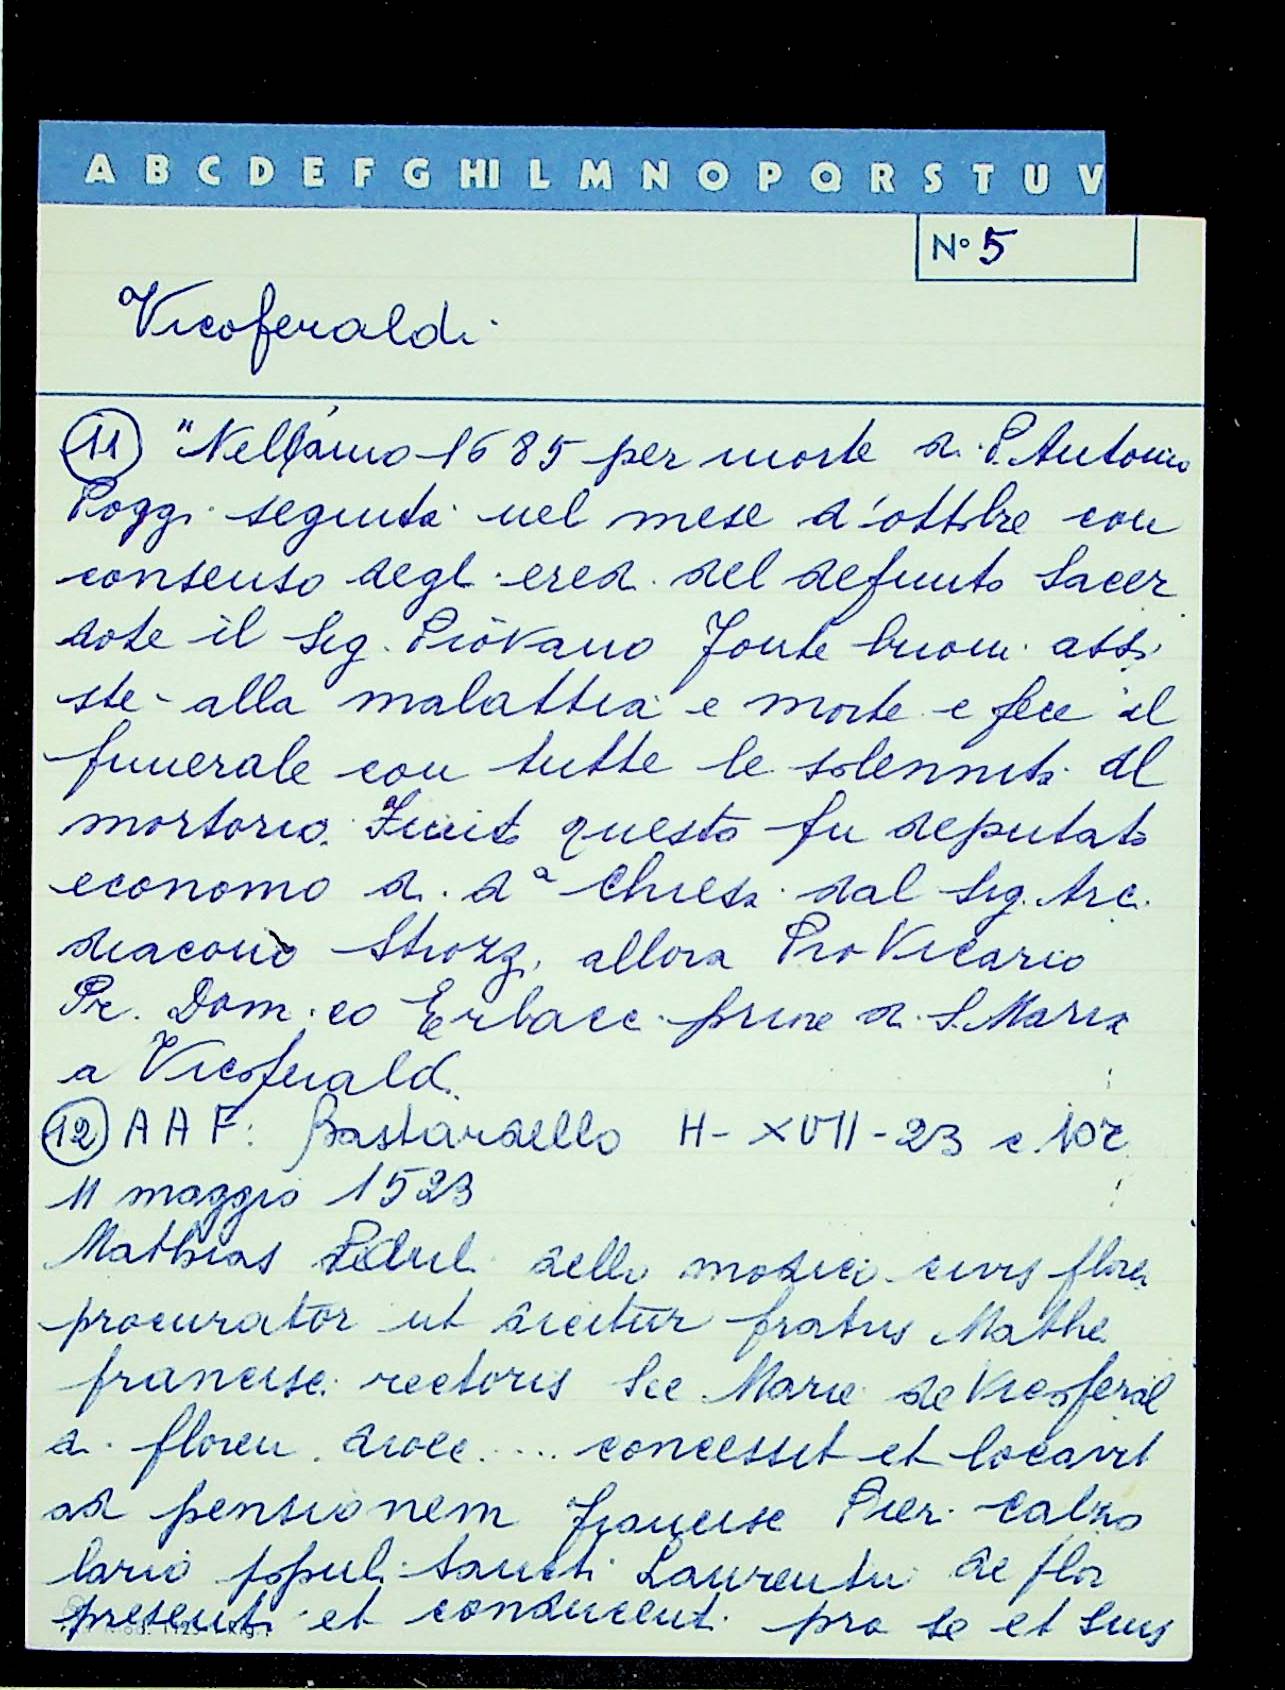 A B C D E F G HI L M N O P Q R S T U V
N° 5
Vicoferaldi
(11) "Nell'anno 1685 per morte di P. Antonio
Poggi seguita nel mese d'ottobre con
consenso degli eredi del defunto Sacer
dote il Sig. Piovano Fonte buoni assi
ste alla malattia e morte e fece il
funerale con tutte le solennità al
mortorio. Finito questo fu deputato
economo di d.ª Chiesa dal Sig. Arci
diacono Strozzi, allora ProVicario
Pr. Dom.co Erbacci priore di S. Maria
a Vicoferaldi.
(12) A A F: Bastardello H - XVII - 23 c. 102
11 maggio 1523
Mathias dello modico civis floren
procurator ut dicitur fratris Mathei
francisci rectoris Sce Marie de Vicoferal
di floren. dioce. ... concessit et locavit
ad pensionem Francisco Pieri calzo
lario populi Sancti Laurentii de flor
presenti et conducenti pro se et suis